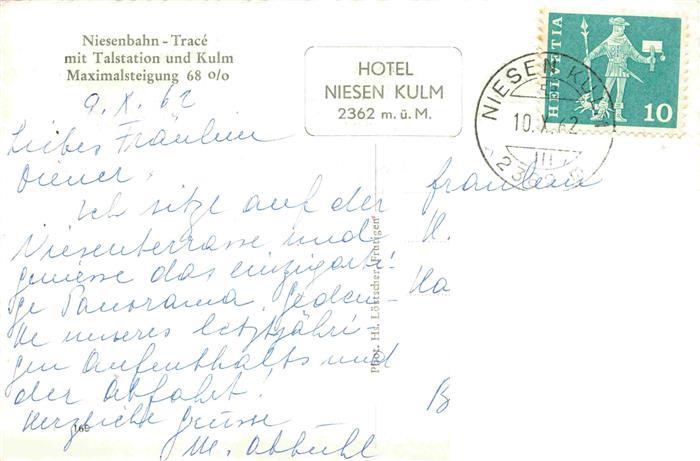 Niesenbahn - Tracé
mit Talstation und Kulm
Maximalsteigung 68 o/o
HOTEL
NIESEN KULM
2362 m. ü. M.
HELVETIA
10
NIESEN KU
10.X.62
9. X. 62
Liebes Fräulein
Ich sitze auf der
Niesenterrasse und
geniesse das einzigarti-
ge Panorama. Geden-
ke unseres letztjähri-
gen Aufenthalts und
der Abfahrt!
Herzliche Grüsse
M. Abbühl
169
Phot. Hs. Lötscher, Frutigen
Fräulein
H.
Ha
B